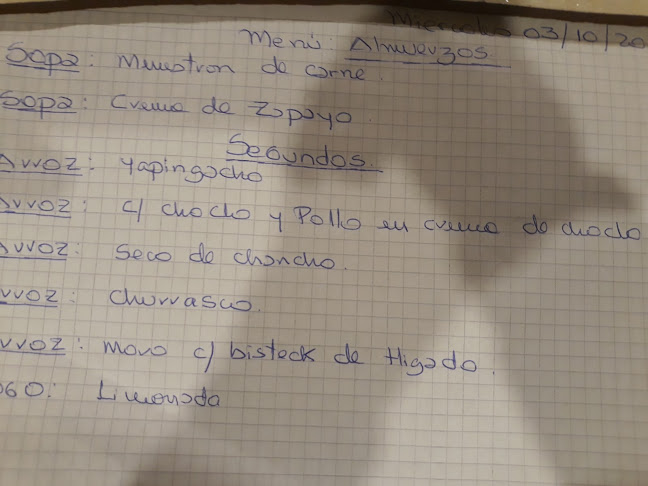 Miercoles 03/10/20
Menú: Almuerzos
Sopa: Minestron de carne.
Sopa: Crema de Zapayo.
Segundos.
Arroz: Yapingacho
Arroz: c/ choclo y Pollo en crema de choclo
Arroz: Seco de chancho.
rroz: Churrasco.
rroz: Moro c/ bisteck de Higado.
ogo: Limonada